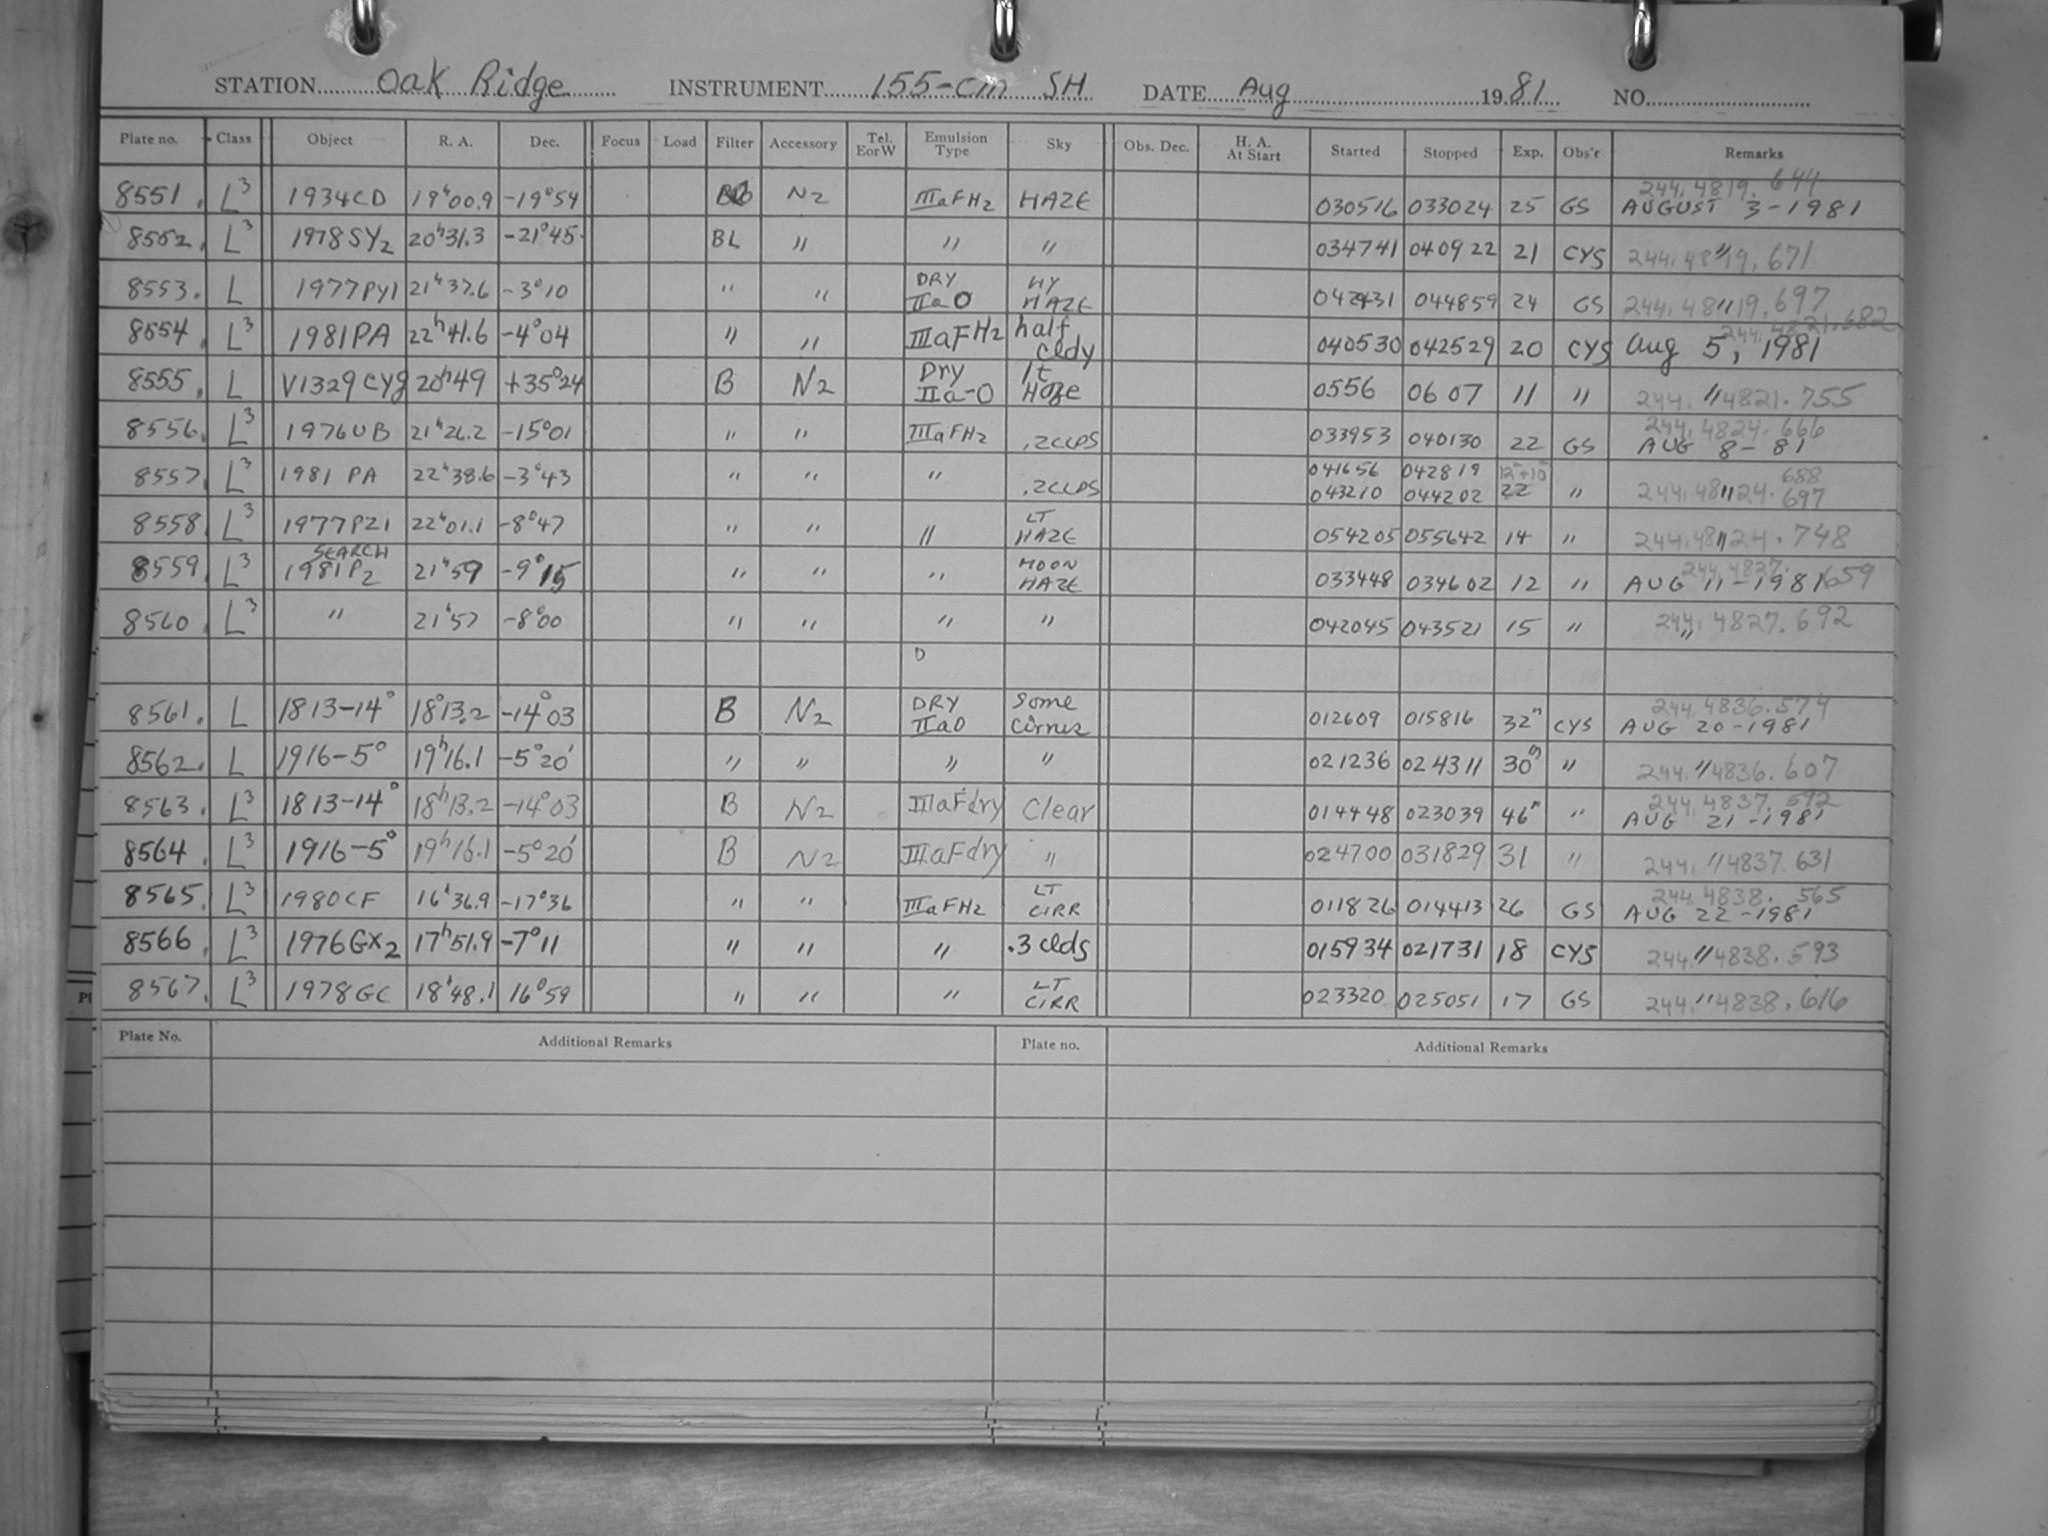 STATION Oak Ridge INSTRUMENT 155-cm SH DATE Aug 1981 NO.
Plate no. Class Object R. A. Dec. Focus Load Filter Accessory Tel. EorW Emulsion Type Sky Obs. Dec. H. A. At Start Started Stopped Exp. Obs'r Remarks
8551. L³ 1934CD 19ʰ00.9 -19°54 N2 IIIaFH2 HAZE 030516 033024 25 GS 244.4819.644 AUGUST 3-1981
8552. L³ 1978SY2 20ʰ31.3 -21°45 BL " " " 034741 040922 21 CYS 244.48"19.671
8553. L 1977PY1 21ʰ37.6 -3°10 " " DRY IIaO HY HAZE 042431 044859 24 GS 244.48"19.697
8554. L³ 1981PA 22ʰ41.6 -4°04 " " IIIaFH2 half cldy 040530 042529 20 CYS 244.4821.682 Aug 5, 1981
8555. L V1329CYg 20ʰ49 +35°24 B N2 Dry IIa-O lt Haze 0556 0607 11 " 244."4821.755
8556. L³ 1976UB 21ʰ26.2 -15°01 " " IIIaFH2 .2CLDS 033953 040130 22 GS 244.4824.666 AUG 8-81
8557. L³ 1981 PA 22ʰ38.6 -3°43 " " " .2CLDS 041656 042819 12ᵐ+10ᵐ 688
043210 044202 22 " 244.48"24.697
8558. L³ 1977PZ1 22ʰ01.1 -8°47 " " " LT HAZE 054205 055642 14 " 244.48"24.748
8559. L³ SEARCH 1981P2 21ʰ59 -9°15 " " " MOON HAZE 033448 034602 12 " 244.4827.659 AUG 11-1981
8560. L³ " 21ʰ57 -8°00 " " " " 042045 043521 15 " 244."4827.692
D
8561. L 1813-14° 18°13.2 -14°03 B N2 DRY IIaO Some Cirrus 012609 015816 32ᵐ CYS 244.4836.574 AUG 20-1981
8562. L 1916-5° 19ʰ16.1 -5°20' " " " " 021236 024311 30ᵐ " 244."4836.607
8563. L³ 1813-14° 18ʰ13.2 -14°03 B N2 IIIaFdry Clear 014448 023039 46ᵐ " 244.4837.592 AUG 21-1981
8564. L³ 1916-5° 19ʰ16.1 -5°20' B N2 IIIaFdry " 024700 031829 31 " 244."4837.631
8565. L³ 1980CF 16ʰ36.9 -17°36 " " IIIaFH2 LT CIRR 011826 014413 26 GS 244.4838.565 AUG 22-1981
8566. L³ 1976GX2 17ʰ51.9 -7°11 " " " .3 clds 015934 021731 18 CYS 244."4838.593
8567. L³ 1978GC 18ʰ48.1 16°59 " " " LT CIRR 023320 025051 17 GS 244."4838.616
Plate No. Additional Remarks Plate no. Additional Remarks